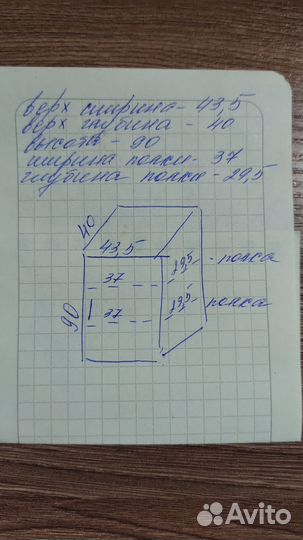 верх ширина - 43,5
верх глубина - 40
высота - 90
ширина полки - 37
глубина полки - 29,5
40
43,5
37
29,5 - полка
90
37
29,5 полка
Avito